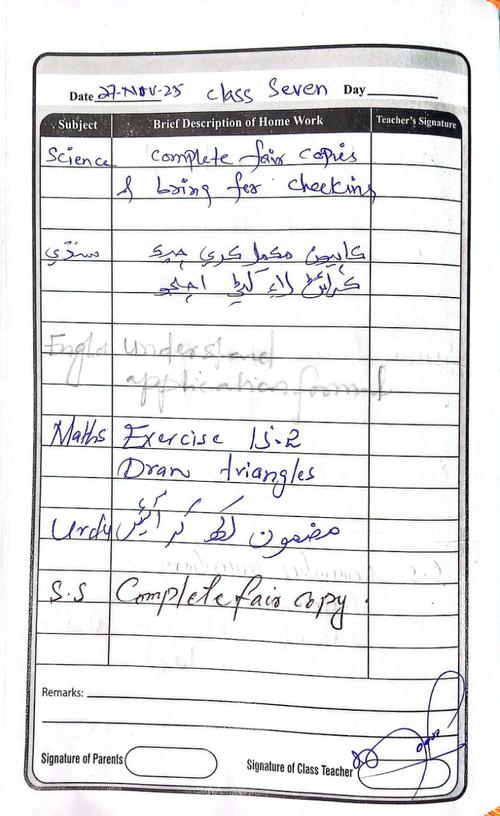 Date 27-Nov-25 class Seven Day
Subject Brief Description of Home Work Teacher's Signature
Science complete fair copies
& bring for checking
سنڌي ڪاپيون مڪمل ڪري چيڪ
ڪرائڻ لاءِ کڻي اچجو
Engls Understand
application format
Maths Exercise 15.2
Draw triangles
Urdu مضمون لکھ کر آئیں
S.S Complete fair copy.
Remarks:
Signature of Parents Signature of Class Teacher